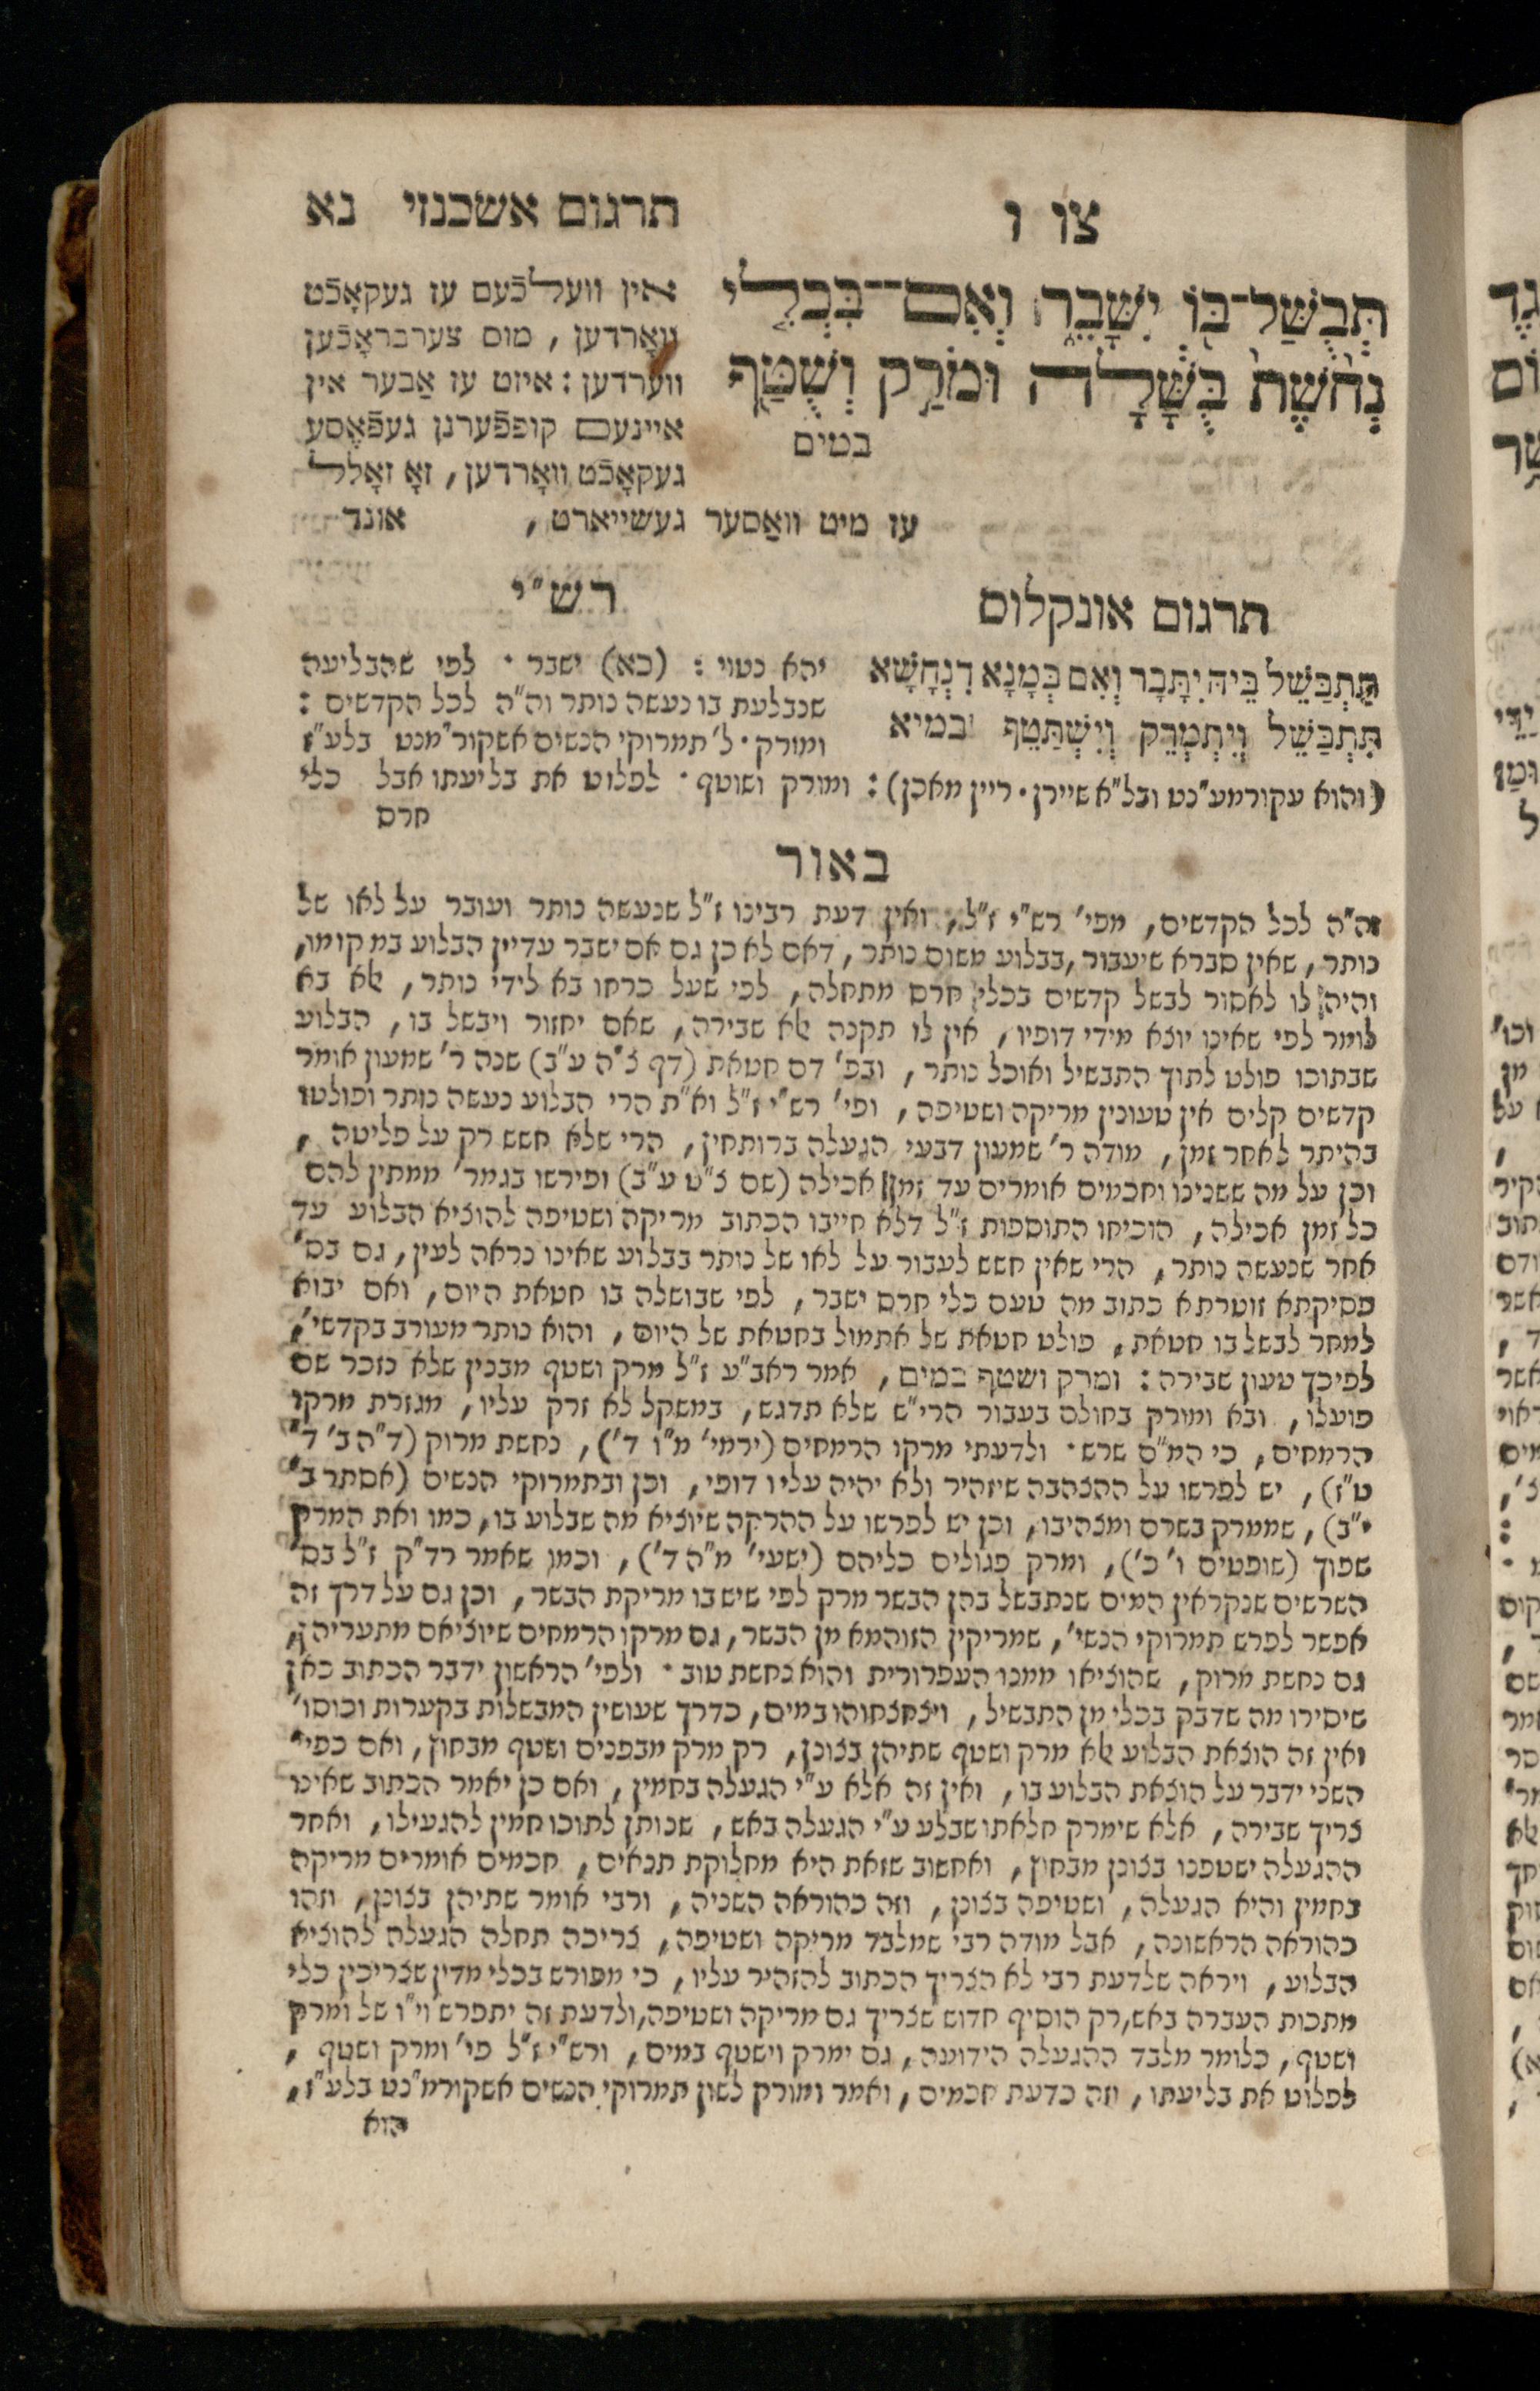 צו ו
תרגום אשכנזי נא
תְּבֻשַּׁל־בּוֹ יִשָּׁבֵר וְאִם־בִּכְלִי
נְחֹשֶׁת בֻּשָּׁלָה וּמֹרַק וְשֻׁטַּף
במים
אין וועלכֿעם עז געקאָכֿט
וואָרדען, מוס צערבראָכֿען
ווערדען: איזט עז אַבער אין
איינעם קופפֿערנן געפֿאֶסע
געקאָכֿט וואָרדען, זאָ זאָלל
עז מיט וואַסער געשייארט, אונד
תרגום אונקלוס
תִּתְבַּשֵּׁל בֵּיהּ יִתָּבָר וְאִם בְּמָנָא דִנְחָשָׁא
תִּתְבַּשֵּׁל וְיִתְמְרֵק וְיִשְׁתַּטֵּף במיא
רש״י
יהא כטוי: (כא) ישבר · לפי שהבליעה
שנבלעת בו נעשה נותר וה״ה לכל הקדשים:
ומורק · ל׳ תמרוקי הנשים אשקור״מנט בלע״ז
(והוא עקורמע״נט ובל״א שיירן · ריין מאכן): ומורק ושוטף · לפלוט את בליעתו אבל כלי
חרס
באור
וה״ה לכל הקדשים, מפי׳ רש״י ז״ל, ואין דעת רבינו ז״ל שנעשה נותר ועובר על לאו של
נותר, שאין סברא שיעבור, בבלוע משום נותר, דאם לא כן גם אם ישבר עדיין הבלוע במקומו,
והיה לו לאסור לבשל קדשים בכלי חרס מתחלה, לפי שעל כרחו בא לידי נותר, אלא בא
לומר לפי שאינו יוצא מידי דופיו, אין לו תקנה אלא שבירה, שאם יחזור ויבשל בו, הבלוע
שבתוכו פולט לתוך התבשיל ואוכל נותר, ובפ׳ דם חטאת (דף צ״ה ע״ב) שנה ר׳ שמעון אומר
קדשים קלים אין טעונין מריקה ושטיפה, ופי׳ רש״י ז״ל וא״ת הרי הבלוע נעשה נותר ופולטו
בהיתר לאחר זמן, מודה ר׳ שמעון דבעי הגעלה ברותחין, הרי שלא חשש רק על פליטה,
וכן על מה ששנינו וחכמים אומרים עד זמן אכילה (שם צ״ט ע״ב) ופירשו בגמר׳ ממתין להם
כל זמן אכילה, הוכיחו התוספות ז״ל דלא חייבו הכתוב מריקה ושטיפה להוציא הבלוע עד
אחר שנעשה נותר, הרי שאין חשש לעבור על לאו של נותר בבלוע שאינו נראה לעין, גם בס׳
פסיקתא זוטרתא כתוב מה טעם כלי חרס ישבר, לפי שבושלה בו חטאת היום, ואם יבוא
למחר לבשל בו חטאת, פולט חטאת של אתמול בחטאת של היום, והוא נותר מעורב בקדשי׳,
לפיכך טעון שבירה: ומרק ושטף במים, אמר ראב״ע ז״ל מרק ושטף מבנין שלא נזכר שם
פועלו, ובא ומורק בחולם בעבור הרי״ש שלא תדגש, במשקל לא זרק עליו, מגזרת מרקו
הרמחים, כי המ״ם שרש · ולדעתי מרקו הרמחים (ירמי׳ מ״ו ד׳), נחשת מרוק (ד״ה ב׳ ד׳
ט״ז), יש לפרשו על ההצהבה שיזהיר ולא יהיה עליו דופי, וכן ובתמרוקי הנשים (אסתר ב׳
י״ב), שממרק בשרם ומצהיבו, וכן יש לפרשו על ההרקה שיוציא מה שבלוע בו, כמו ואת המרק
שפוך (שופטים ו׳ כ׳), ומרק פגולים כליהם (ישעי׳ מ״ה ד׳), וכמו שאמר רד״ק ז״ל בס׳
השרשים שנקראין המים שנתבשל בהן הבשר מרק לפי שיש בו מריקת הבשר, וכן גם על דרך זה
אפשר לפרש תמרוקי הנשי׳, שמריקין הזוהמא מן הבשר, גם מרקו הרמחים שיוציאם מתעריהן,
גם נחשת מרוק, שהוציאו ממנו העפרורית והוא נחשת טוב · ולפי׳ הראשון ידבר הכתוב כאן
שיסירו מה שדבק בכלי מן התבשיל, ויצחצחוהו במים, כדרך שעושין המבשלות בקערות וכוסו׳
ואין זה הוצאת הבלוע אלא מרק ושטף שתיהן בצונן, רק מרק מבפנים ושטף מבחוץ, ואם כפי׳
השני ידבר על הוצאת הבלוע בו, ואין זה אלא ע״י הגעלה בחמין, ואם כן יאמר הכתוב שאינו
צריך שבירה, אלא שימרק חלאתו שבלע ע״י הגעלה באש, שנותן לתוכו חמין להגעילו, ואחר
ההגעלה ישטפנו בצונן מבחוץ, ואחשוב שזאת היא מחלוקת תנאים, חכמים אומרים מריקה
בחמין והיא הגעלה, ושטיפה בצונן, וזה כהוראה השניה, ורבי אומר שתיהן בצונן, וזהו
כהוראה הראשונה, אבל מודה רבי שמלבד מריקה ושטיפה, צריכה תחלה הגעלה להוציא
הבלוע, ויראה שלדעת רבי לא הצריך הכתוב להזהיר עליו, כי מפורש בכלי מדין שצריכין כלי
מתכות העברה באש, רק הוסיף חדוש שצריך גם מריקה ושטיפה, ולדעת זה יתפרש וי״ו של ומרק
ושטף, כלומר מלבד ההגעלה הידועה, גם ימרק וישטף במים, ורש״י ז״ל פי׳ ומרק ושטף,
לפלוט את בליעתו, וזה כדעת חכמים, ואמר ומורק לשון תמרוקי הנשים אשקורמ״נט בלע״ז,
הוא